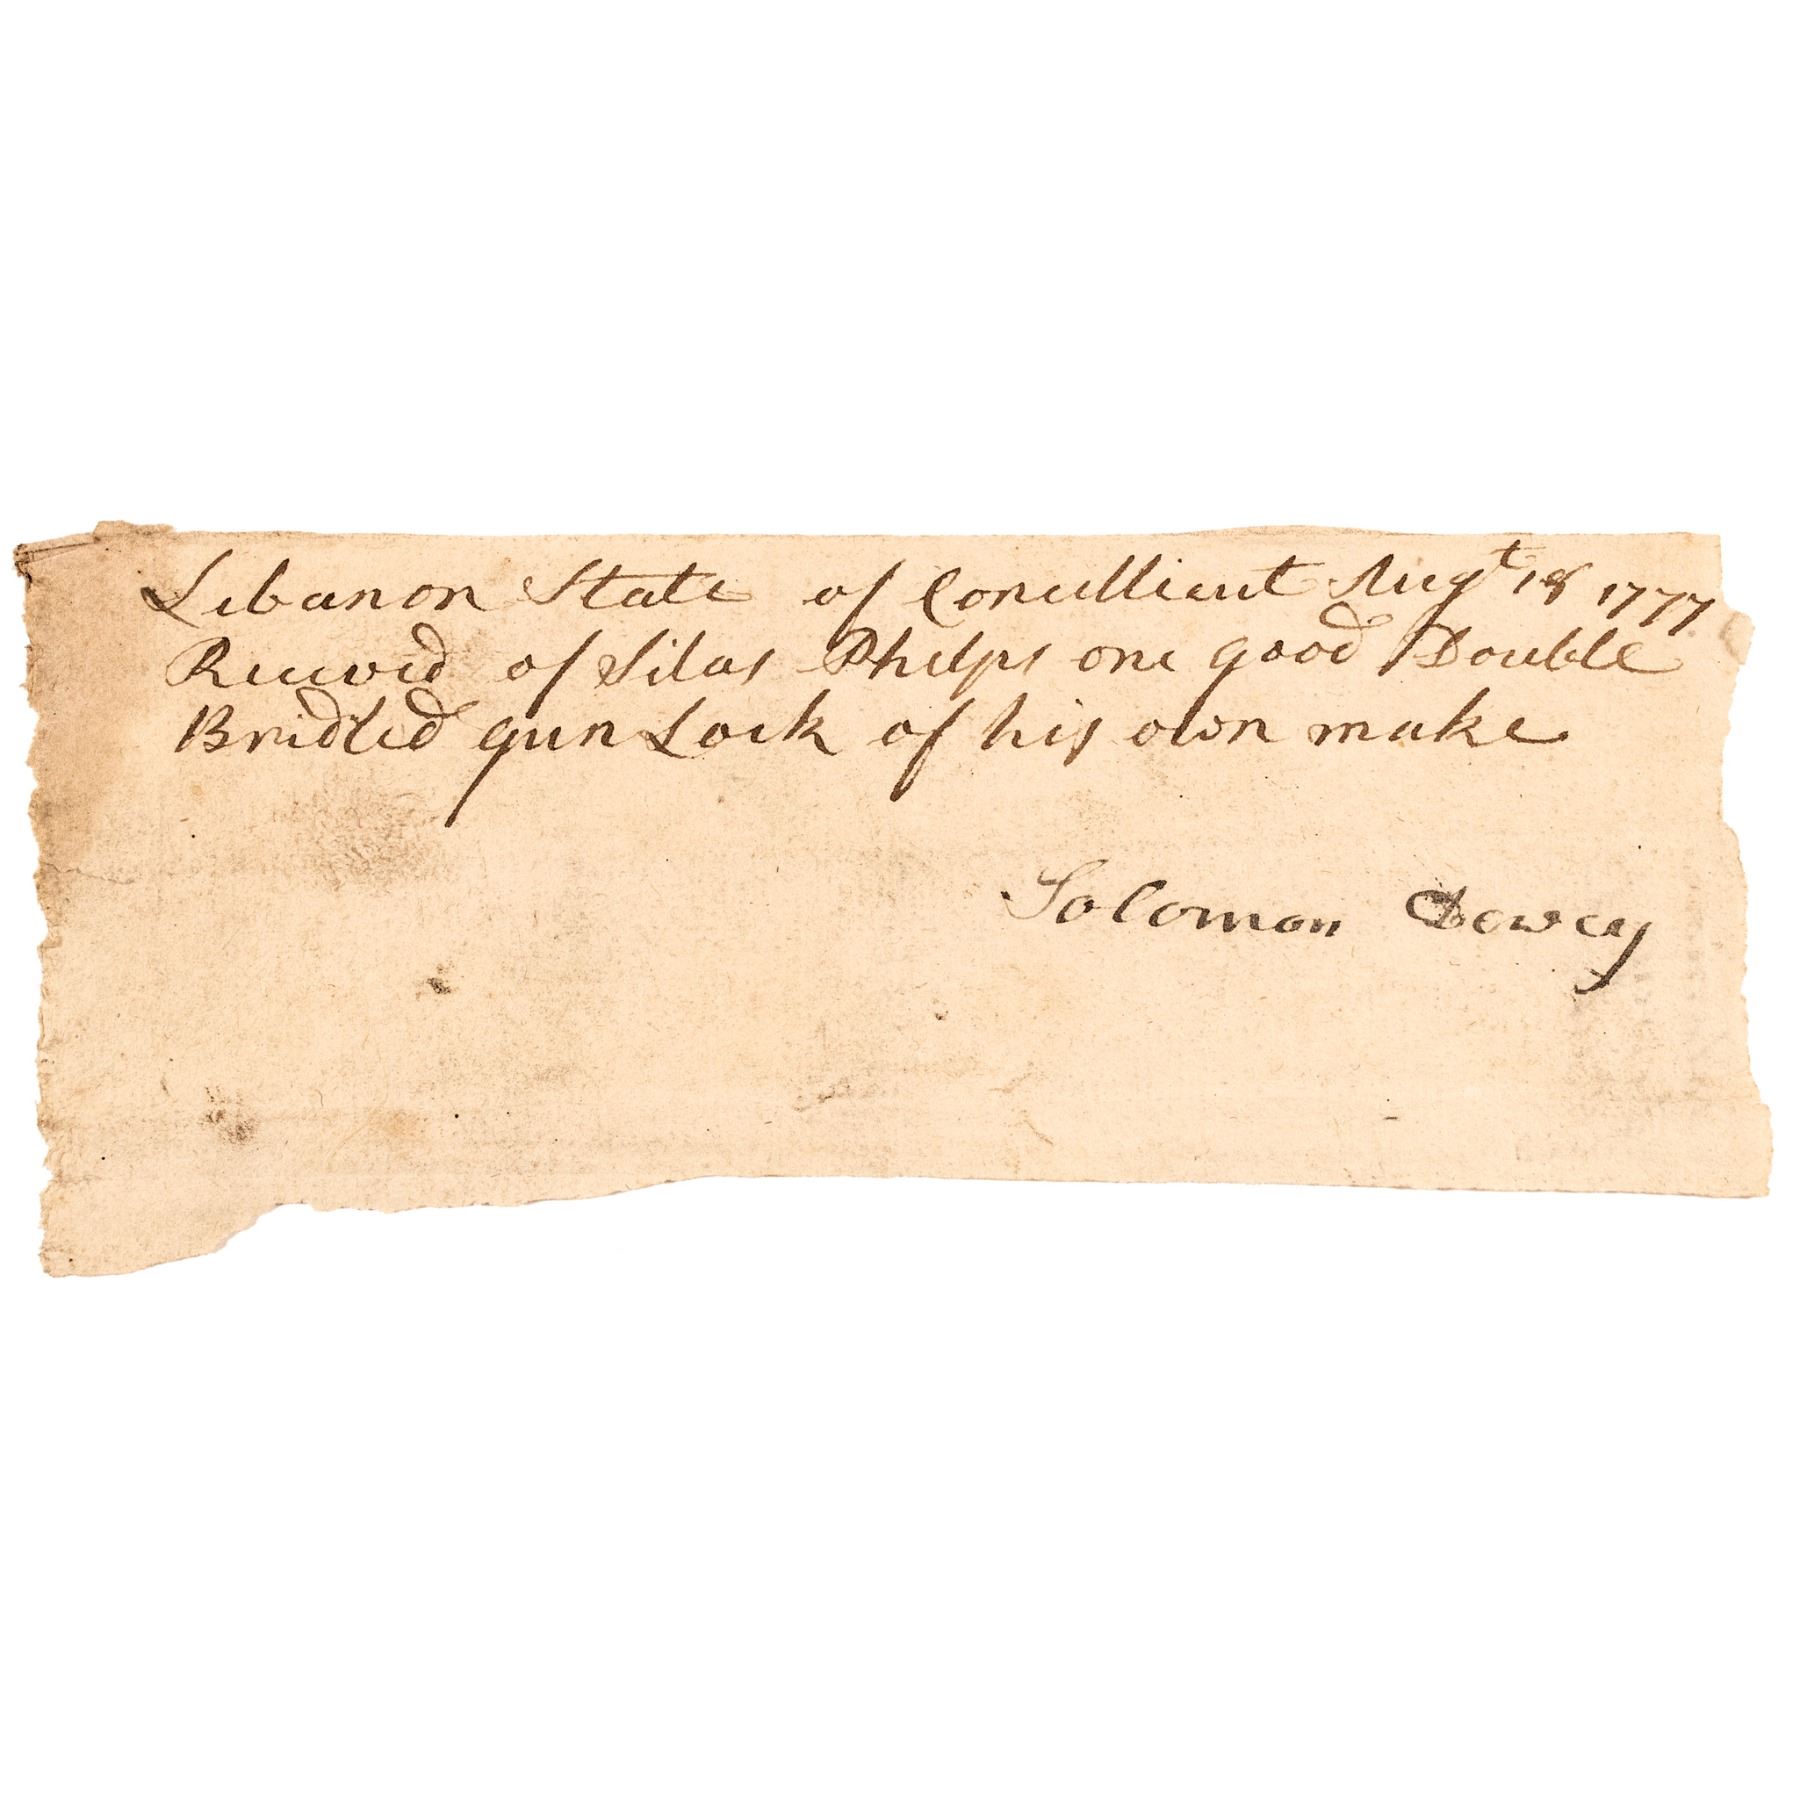 Lebanon State of Connecticut Augt 18 1777
Received of Silas Phelps one good Double
Bridled gun Lock of his own make
Solomon Dewey